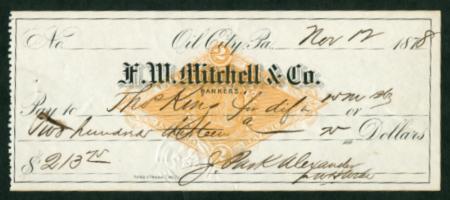 No. Oil City, Pa. Nov 12 1878
F. W. Mitchell & Co.
BANKERS.
Pay to Thos King for dif in or
Two hundred thirteen Dollars
$213 75
J. Park Alexander